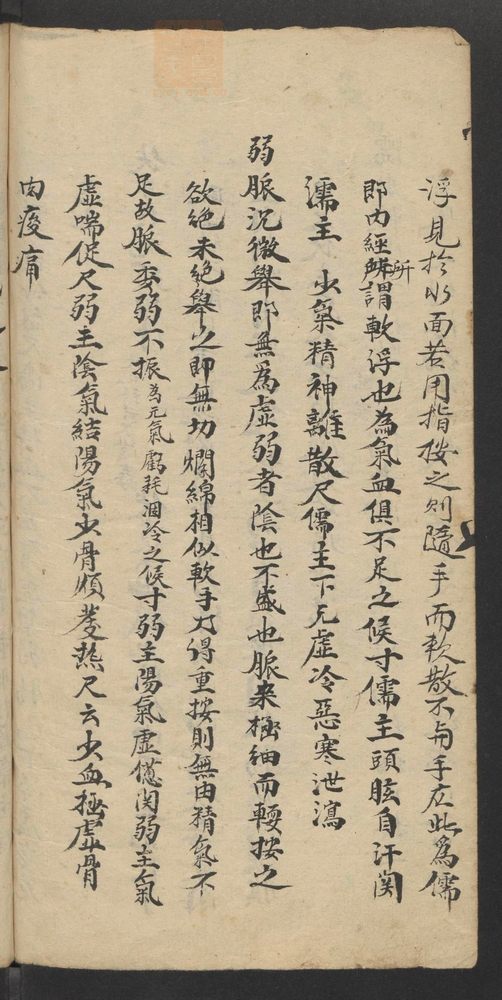 浮見於水面若用指按之則隨手而軟散不与手应此為儒
即内經所謂軟浮也為氣血俱不足之候寸儒主頭眩自汗関
濡主 少氣精神離散尺儒主下元虛冷惡寒泄瀉
弱脉沉微舉即無為虛弱者陰也不盛也脉来極細而軟按之
欲绝未绝舉之即無切爛綿相似軟手乃得重按則無由精氣不
足故脉委弱不振為元氣虧耗涸冷之候寸弱主陽氣虛関弱主氣
虛喘促尺弱主陰氣結陽氣少骨煩發热尺云少血極虛骨
肉痠痛